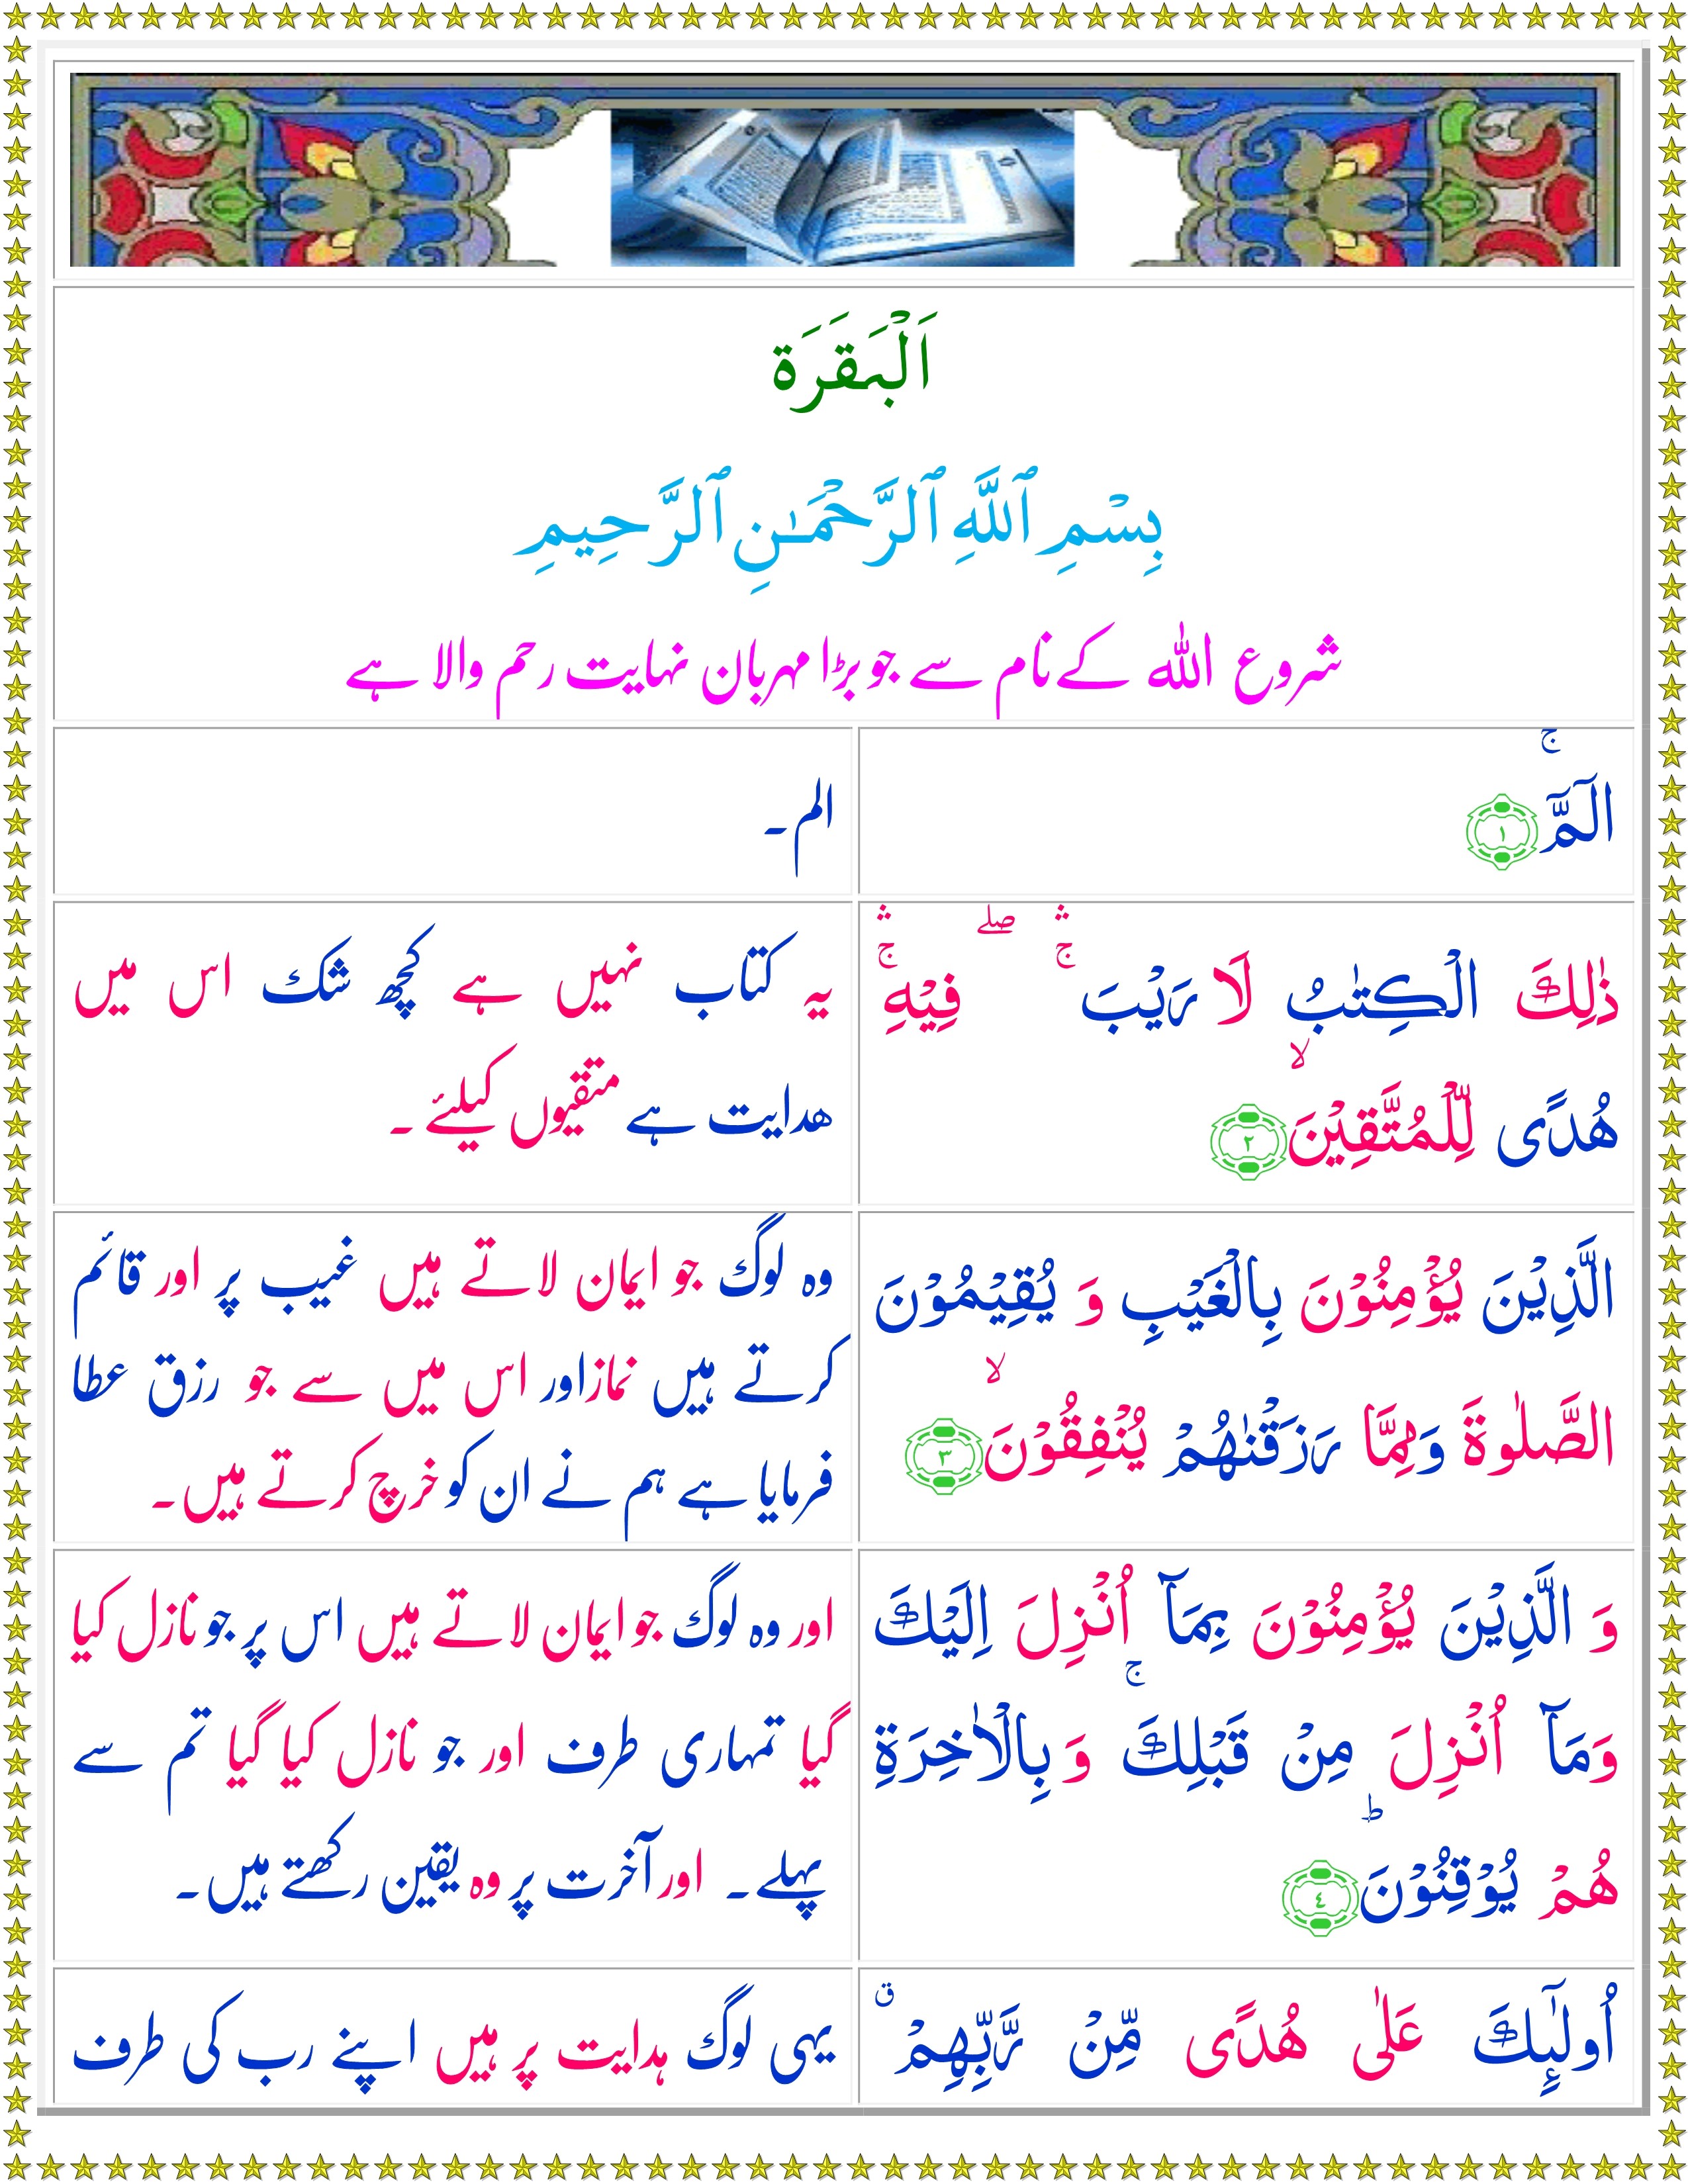 اَلْبَقَرَة
بِسْمِ ٱللَّهِ ٱلرَّحْمَـٰنِ ٱلرَّحِيمِ
شروع اللہ کے نام سے جو بڑا مہربان نہایت رحم والا ہے
الٓمّٓ ۚ ﴿١﴾
الم۔
ذٰلِكَ الْكِتٰبُ لَا رَيْبَ ۛۚ ۖ فِيْهِ ۛۚ
هُدًى لِّلْمُتَّقِيْنَ ۙ ﴿٢﴾
یہ کتاب نہیں ہے کچھ شک اس میں
ھدایت ہے متقیوں کیلئے ۔
الَّذِيْنَ يُؤْمِنُوْنَ بِالْغَيْبِ وَ يُقِيْمُوْنَ
الصَّلٰوةَ وَمِمَّا رَزَقْنٰهُمْ يُنْفِقُوْنَ ۙ ﴿٣﴾
وہ لوگ جو ایمان لاتے ہیں غیب پر اور قائم
کرتے ہیں نماز اور اس میں سے جو رزق عطا
فرمایا ہے ہم نے ان کو خرچ کرتے ہیں۔
وَ الَّذِيْنَ يُؤْمِنُوْنَ بِمَآ اُنْزِلَ اِلَيْكَ
وَمَآ اُنْزِلَ مِنْ قَبْلِكَ ۚ وَ بِالْاٰخِرَةِ
هُمْ يُوْقِنُوْنَ ؕ ﴿٤﴾
اور وہ لوگ جو ایمان لاتے ہیں اس پر جو نازل کیا
گیا تمہاری طرف اور جو نازل کیا گیا تم سے
پہلے۔ اور آخرت پر وہ یقین رکھتے ہیں۔
اُولٰٓٮِٕكَ عَلٰى هُدًى مِّنْ رَّبِّهِمْ ۗ
یہی لوگ ہدایت پر ہیں اپنے رب کی طرف